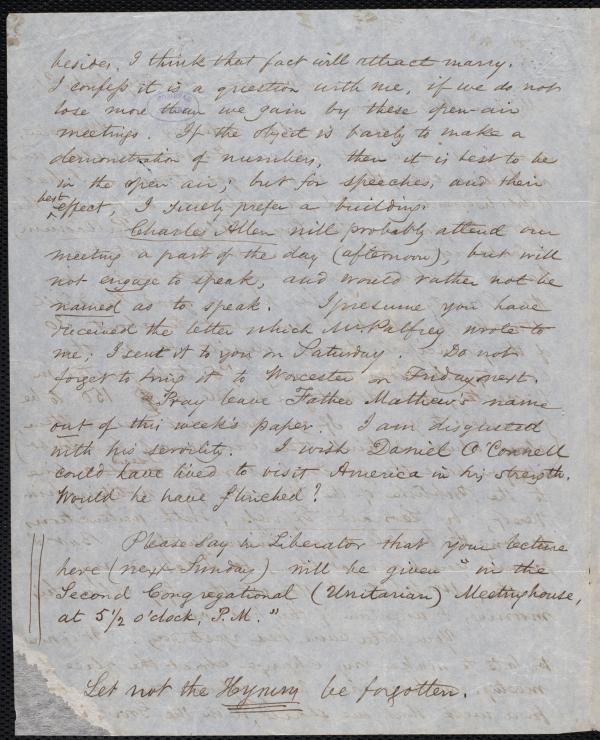 besides, I think that fact will attract many.
I confess it is a question with me, if we do not
lose more than we gain by these open-air
meetings. If the object is barely to make a
demonstration of numbers, then it is best to be
in the open air; but for speeches, and their
best
effect, I surely prefer a building.
Charles Allen will probably attend our
meeting a part of the day (afternoon), but will
not engage to speak, and would rather not be
named as to speak. I presume you have
received the letter which Mr Palfrey wrote to
me; I sent it to you on Saturday. Do not
forget to bring it to Worcester on Friday next.
Pray leave Father Mathew's name
out of this week's paper. I am disgusted
with his servility. I wish Daniel O'Connell
could have lived to visit America in his strength.
Would he have flinched?
Please say in Liberator that your lecture
here (next Sunday) will be given "in the
Second Congregational (Unitarian) Meetinghouse,
at 5 1/2 o'clock, P.M."
Let not the Hymns be forgotten.